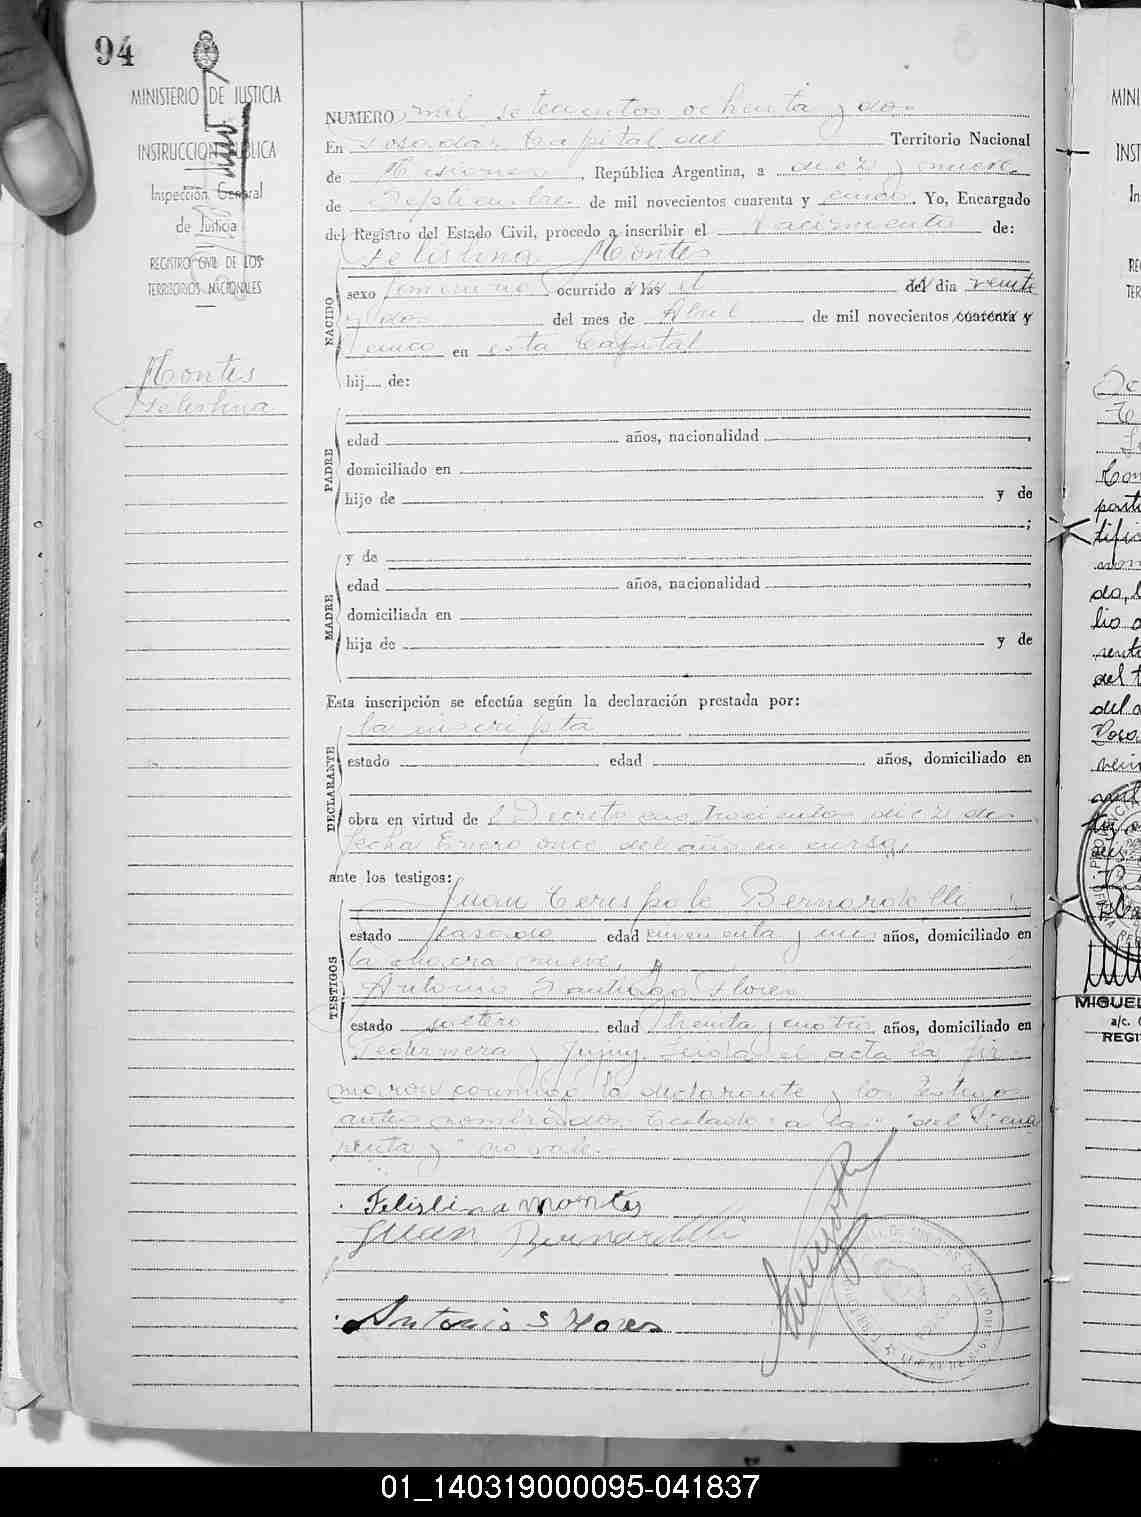 94
MINISTERIO DE JUSTICIA
INSTRUCCION PUBLICA
Inspección General
de Justicia
REGISTRO CIVIL DE LOS
TERRITORIOS NACIONALES
Montes
Felislina
NUMERO mil setecientos ochenta y dos
En Posadas Capital del Territorio Nacional
de Misiones, República Argentina, a diez y nueve
de Septiembre de mil novecientos cuarenta y cinco. Yo, Encargado
del Registro del Estado Civil, procedo a inscribir el Nacimiento de:
Felislina Montes
NACIDO
sexo femenino ocurrido a las el del dia veinte
y dos del mes de Abril de mil novecientos cuarenta y
cinco en esta Capital
hij.... de:
PADRE
edad años, nacionalidad
domiciliado en
hijo de y de
;
MADRE
y de
edad años, nacionalidad
domiciliada en
hija de y de
Esta inscripción se efectúa según la declaración prestada por:
DECLARANTE
la inscripta
estado edad años, domiciliado en
obra en virtud de l Decreto cuatrocientos diez de
fecha Enero once del año en curso,
ante los testigos:
TESTIGOS
Juan Bernardelli
estado casado edad cincuenta y un años, domiciliado en
la chacra nueve,
Antonio Santiago Flores
estado soltero edad treinta y cuatro años, domiciliado en
Pedernera y Jujuy. Leída el acta la fir-
maron conmigo la declarante y los testigos
antes nombrados. Testado: "a las" "del" "cua
renta y" no vale.
Felislina montes
Juan Bernardelli
Antonio S Flores
MINI
INST
In
RE
TER
MIGUEL
a/c.
REGI
01_140319000095-041837